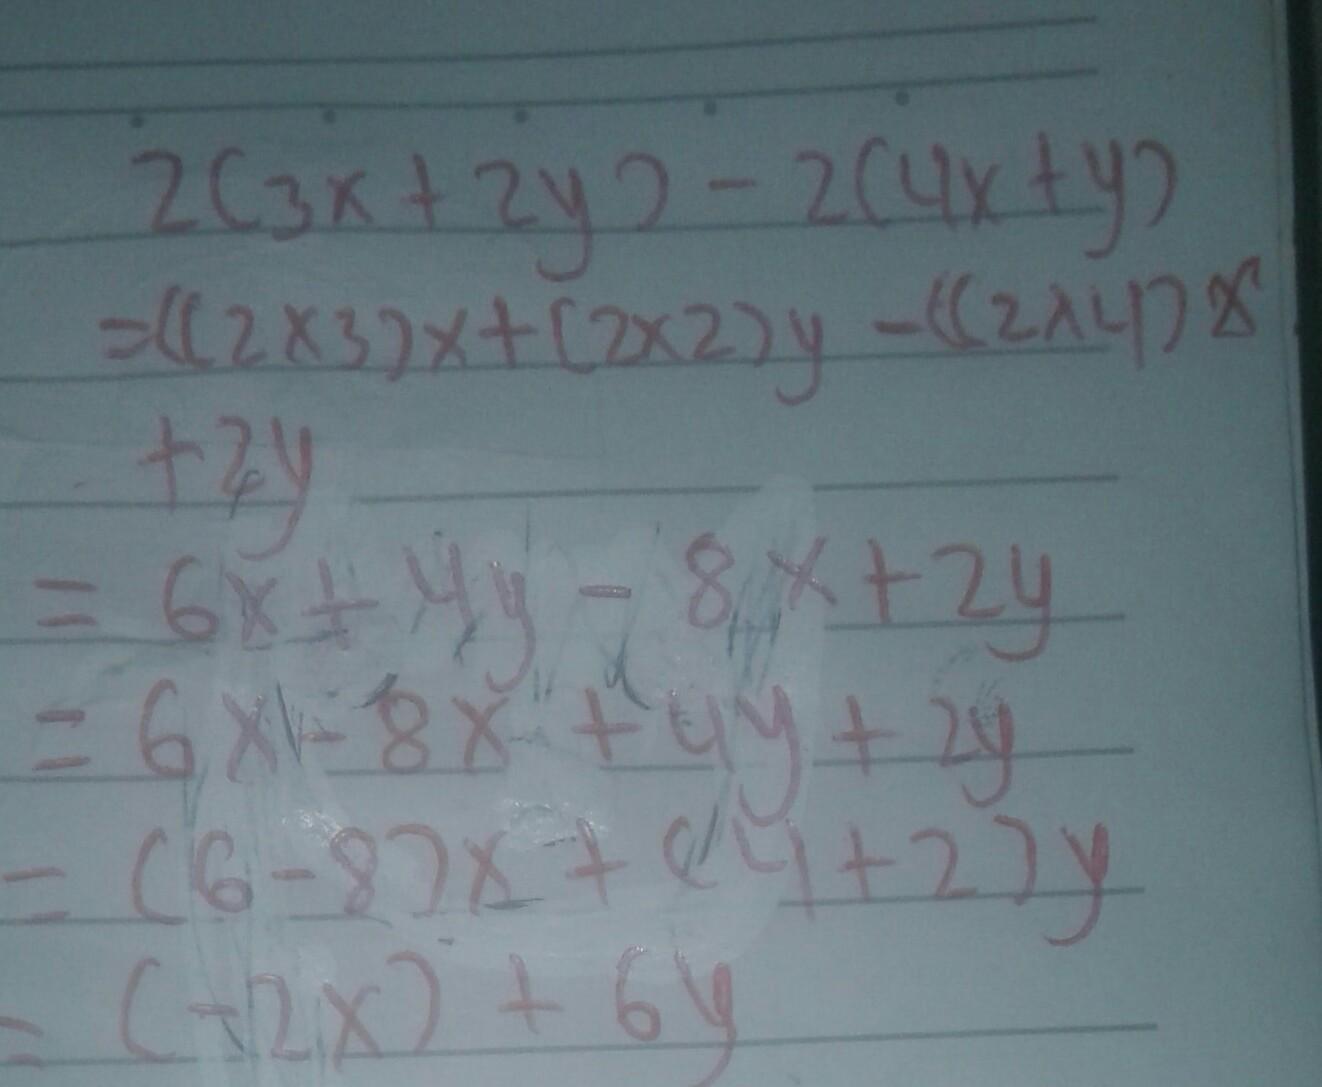 2(3x + 2y) - 2(4x + y)
=((2x3)x+(2x2)y -((2x4)x
+2y
= 6x + 4y - 8x + 2y
= 6x - 8x + 4y + 2y
= (6-8)x + (4+2)y
= (-2x) + 6y